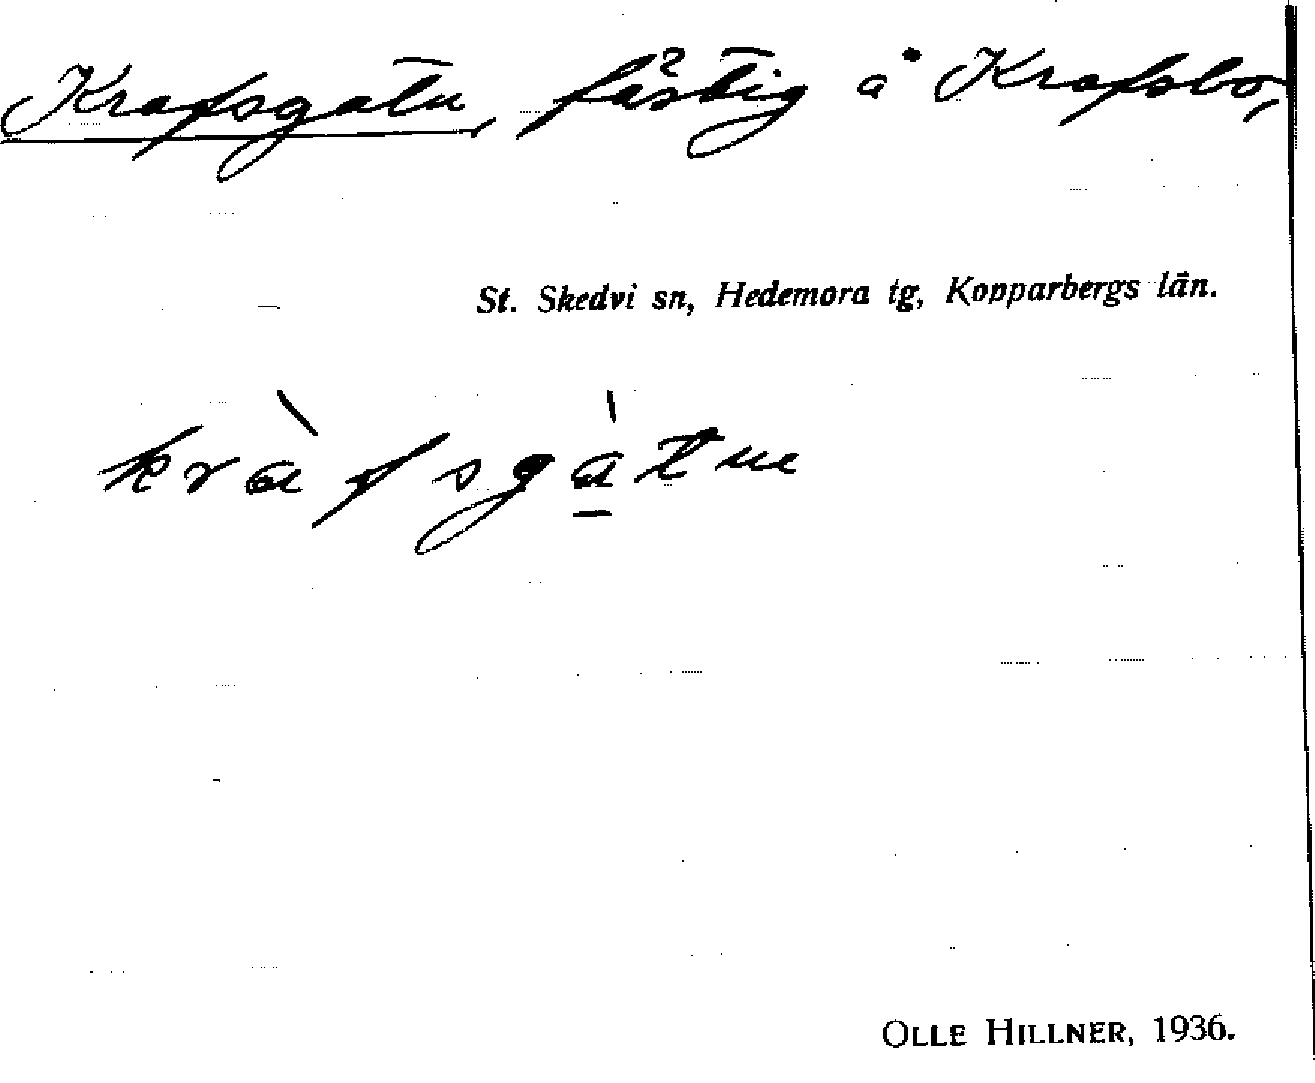 Krafsgatu, fästig å Krafsbo,
St. Skedvi sn, Hedemora tg, Kopparbergs län.
kràfsgàtu
OLLE HILLNER, 1936.